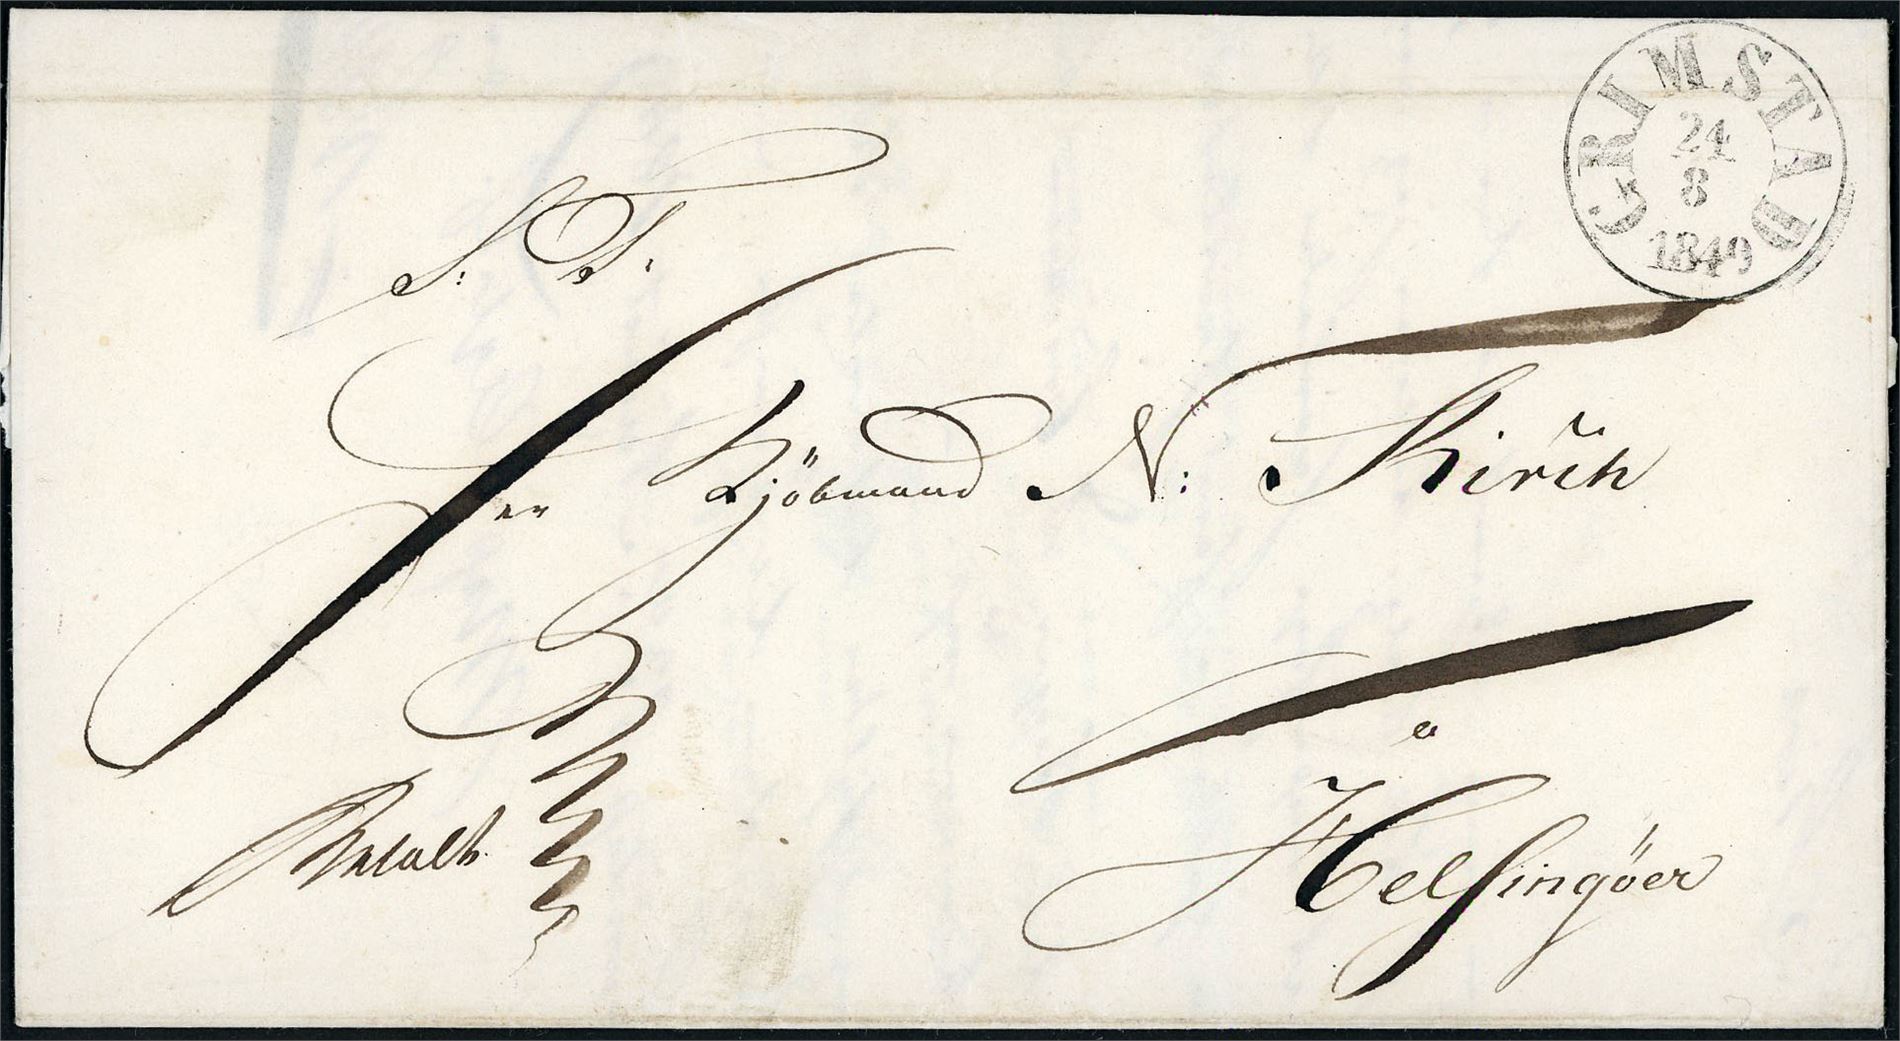 GRIMSTAD
24
8
1849
S: T.
Herr Kjöbmand N: Kirck
a
Helsingöer
Betalt.